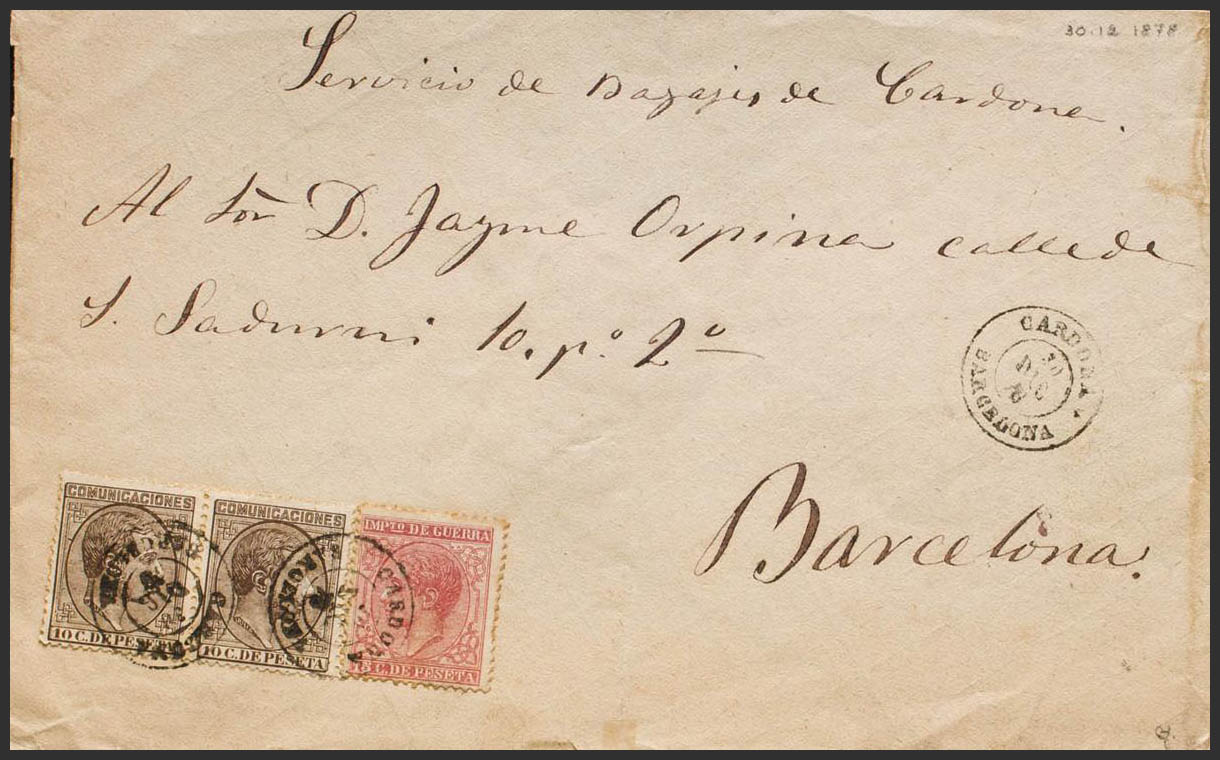 30.12 1878
Servicio de Bagajes de Cardona.
Al Sor D. Jayme Orpina calle de
S. Sadurni 10, po. 2o
CARDONA
30 DIC 78
BARCELONA
Barcelona.
COMUNICACIONES
10 C. DE PESETA
COMUNICACIONES
10 C. DE PESETA
IMPTO DE GUERRA
15 C. DE PESETA
CARDONA
BARCELONA